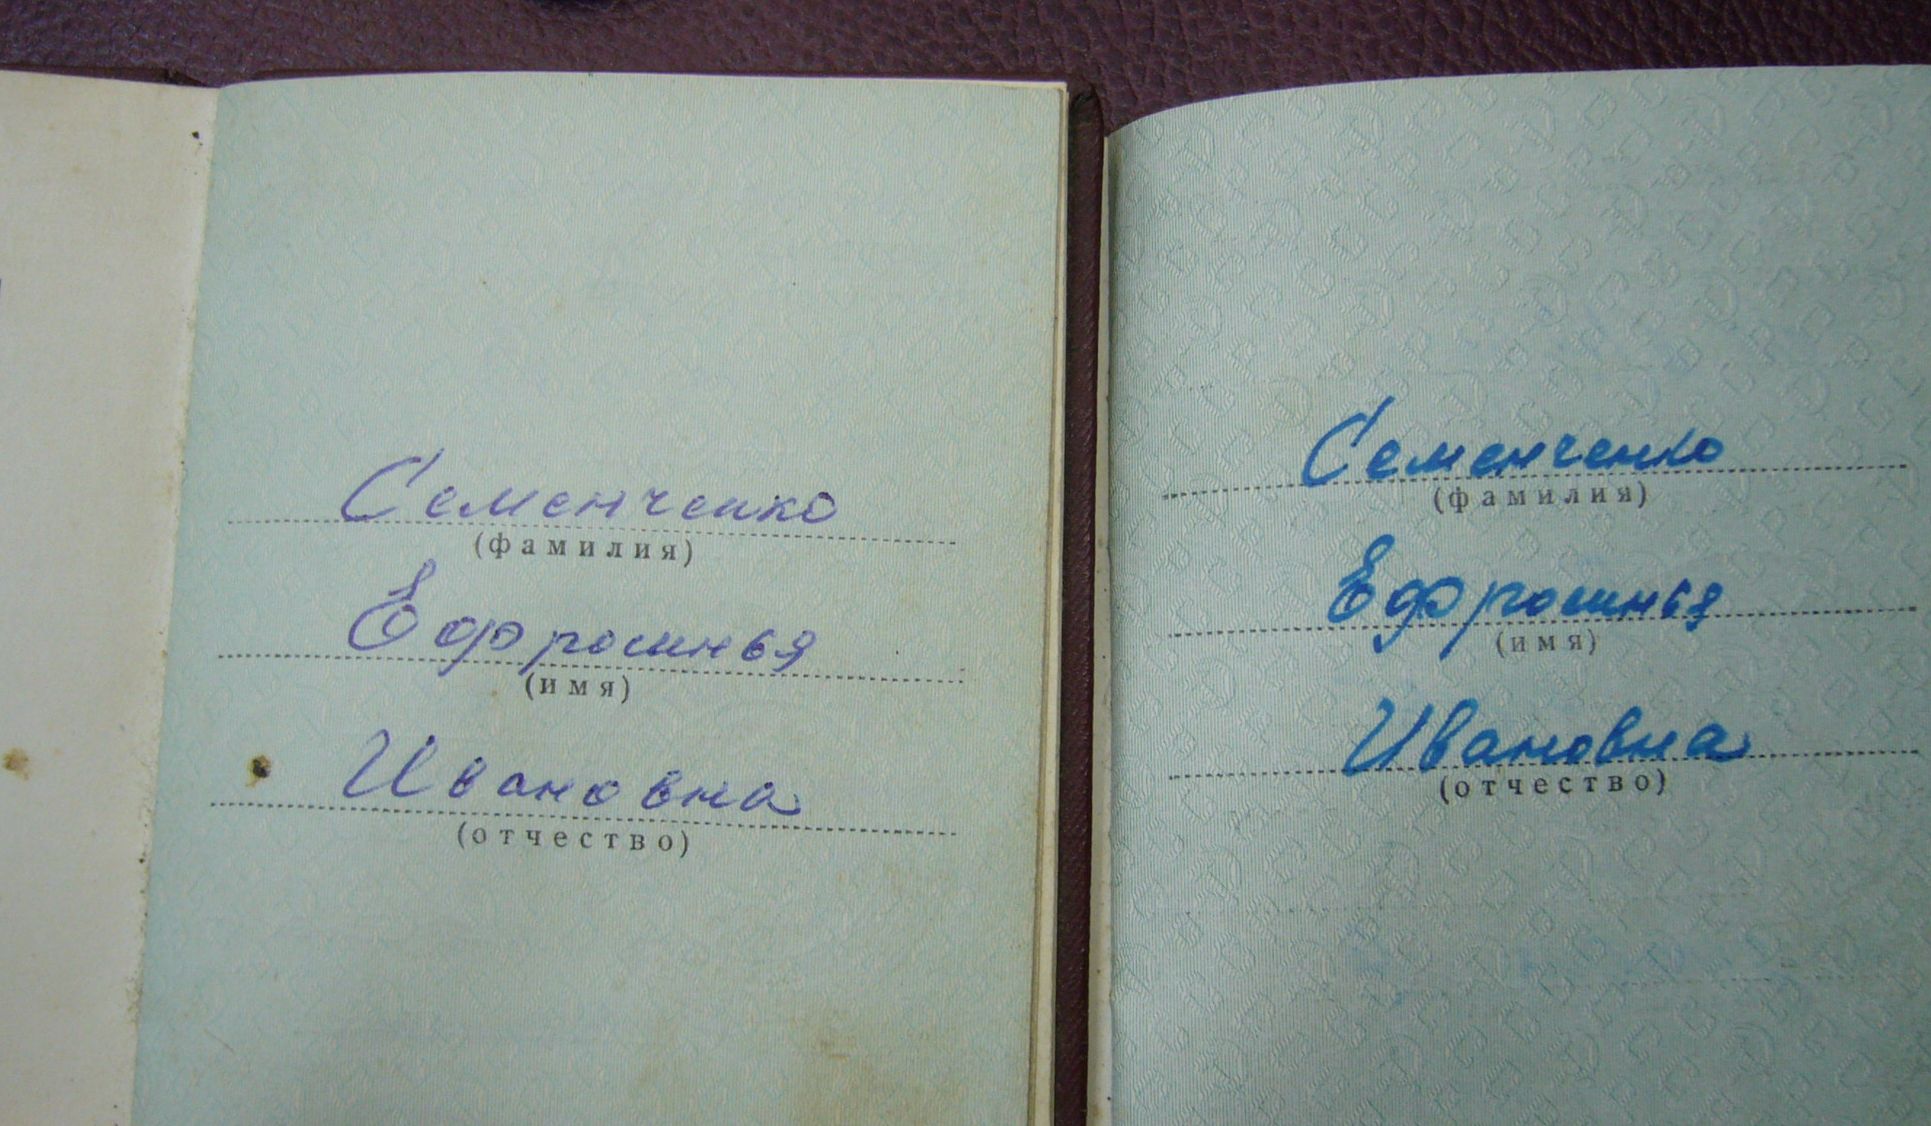 Семенченко
(фамилия)
Ефросинья
(имя)
Ивановна
(отчество)
Семенченко
(фамилия)
Ефросинья
(имя)
Ивановна
(отчество)